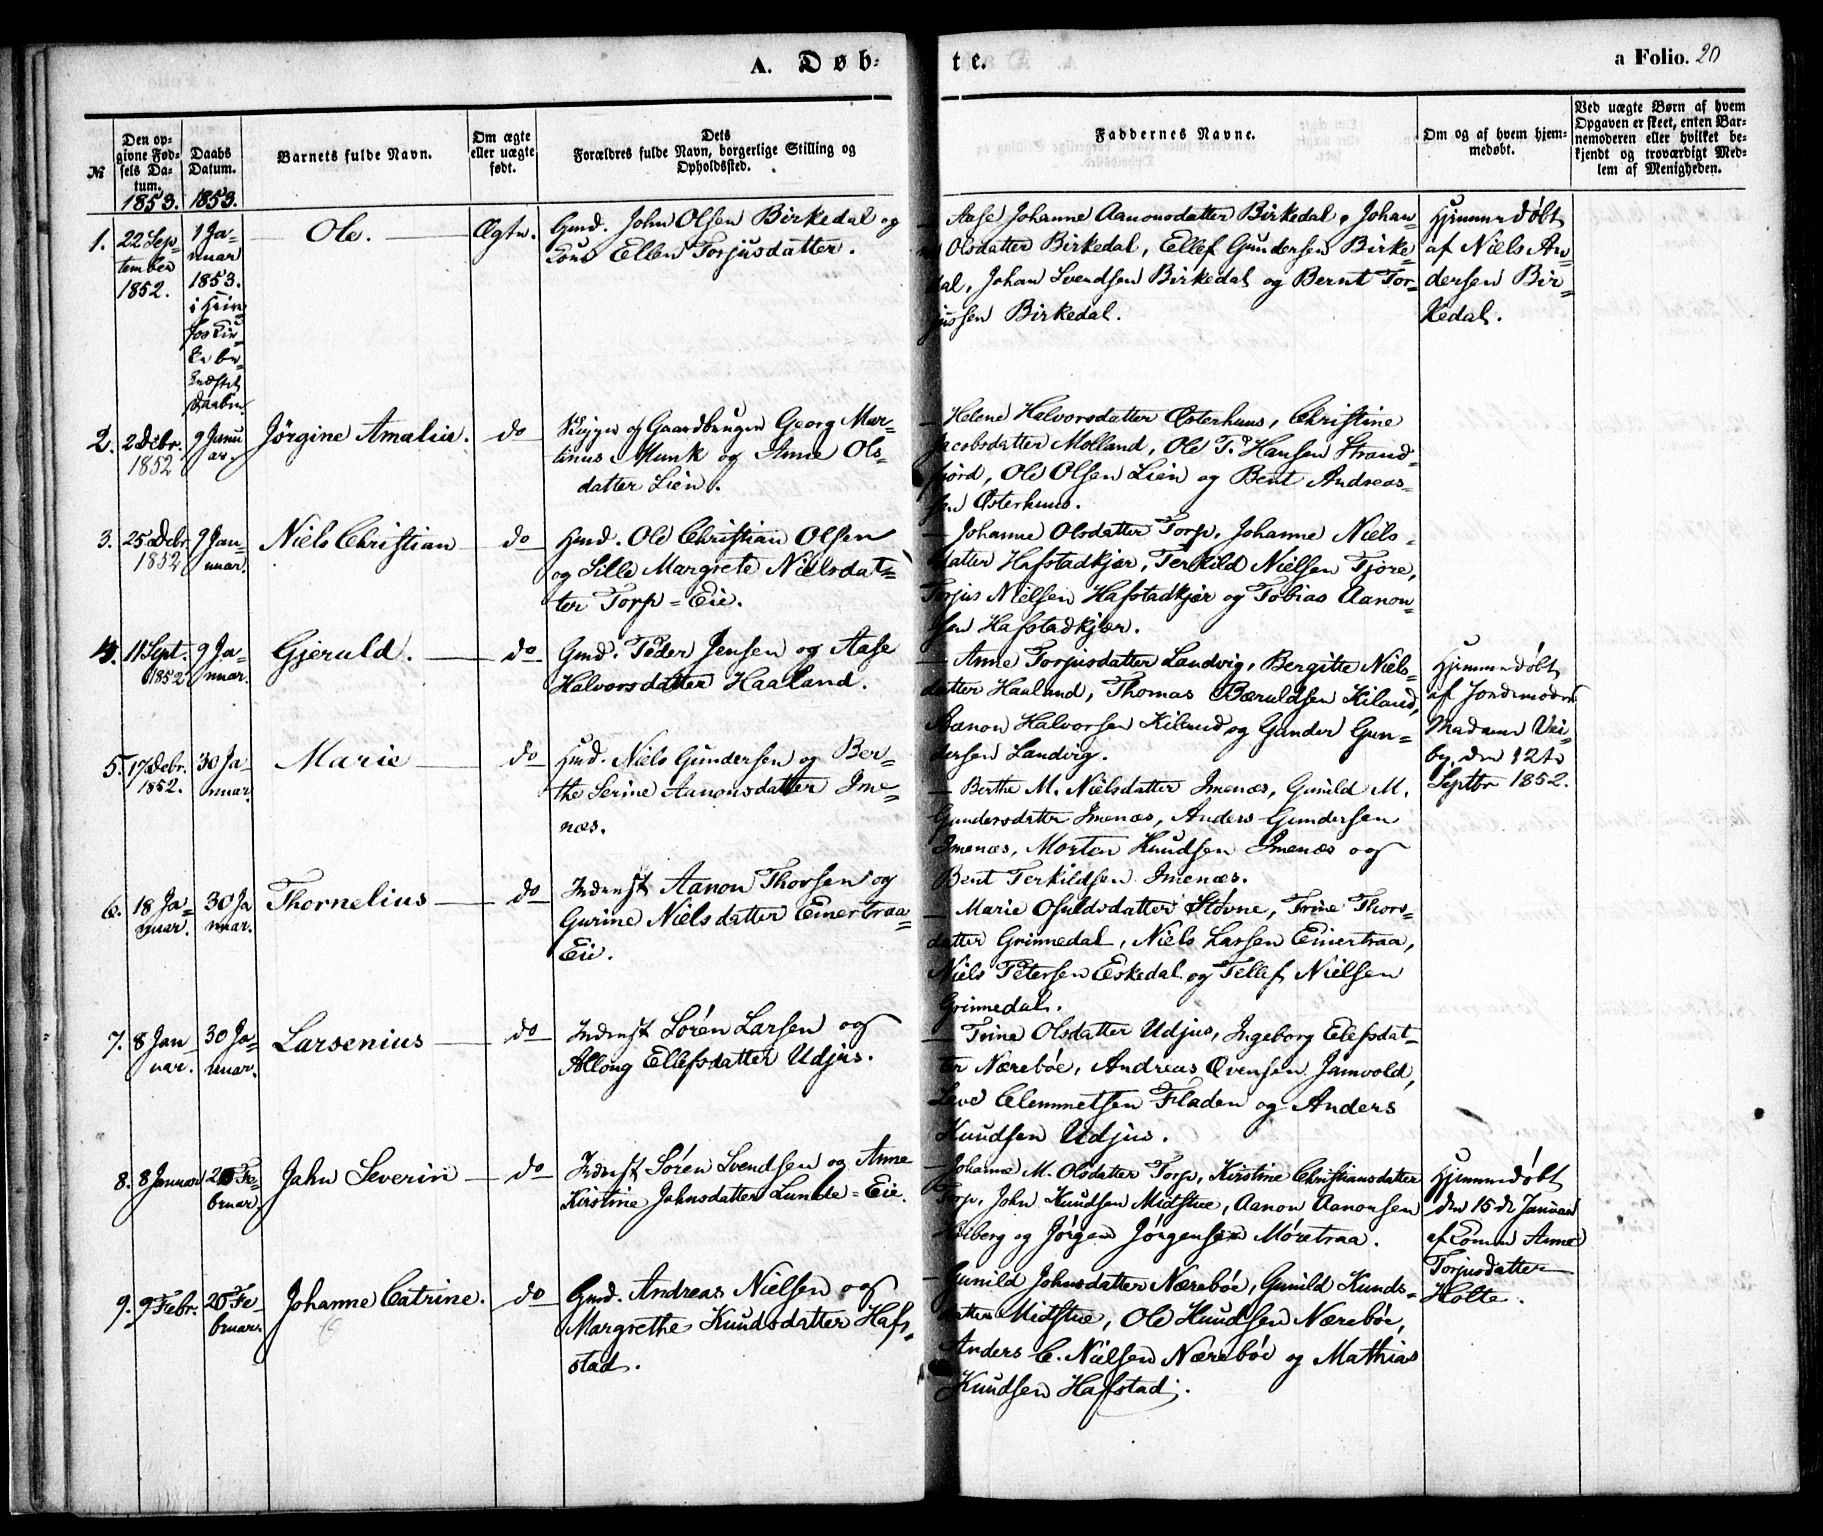 A. Døb-
te.
a Folio. 20
№
Den op-
givne Fød-
sels Da-
tum.
1853.
Daabs
Datum.
1853.
Barnets fulde Navn.
Om ægte
eller uægte
født.
Dets
Forældres fulde Navn, borgerlige Stilling og
Opholdssted.
Faddernes Navne.
Om og af hvem hjem-
medøbt.
Ved uægte Børn af hvem
Opgaven er skeet, enten Bar-
nemoderen eller hvilket be-
kjendt og troværdigt Med-
lem af Menigheden.
1.
22 Sep-
tember
1852.
1 Ja-
nuar
1853.
Ole.
Ægte.
Gmd. John Olsen Birkedal og
Ellen Torjusdatter.
Aase Johanne Aanonsdatter Birkedal, Johan-
Olsdatter Birkedal, Ellef Gundersen Birke-
dal, Johan Svendsen Birkedal og Bernt Tor-
jussen Birkedal.
Hjemmedøbt
af Niels An-
dersen Bir-
kedal.
2.
2 Debr.
1852
9 Janu
ar.
Jørgine Amalie.
do
og Gaardbruger Georg Mar-
tinus Munk og Anne Ols-
datter Lien.
Helene Halvorsdatter Østerhuus, Christine
Jacobsdatter Molland, Ole T. Hansen Strand-
fjord, Ole Olsen Lien og Bent Andreas-
sen Østerhuus.
3.
25 Debr
1852
9 Jan-
nuar.
Niels Christian
do
Huusmd. Ole Christian Olsen
og Sille Margrete Nielsdat-
ter Torp-Eie.
Johanne Olsdatter Torp, Johanne Niels-
datter Hafstadkjær, Terkild Nielsen Fjøre,
Torjus Nielsen Hafstadkjær og Tobias Aanon-
sen Hafstadkjær.
4.
11 Sept.
1852
9 Ja-
nuar.
Gjeruld.
do
Gmd. Peder Jensen og Aase
Halvorsdatter Haaland.
Anne Torjusdatter Landvig, Bergitte Niels-
datter Haaland, Thomas Bæruldsen Kiland,
Aanon Halvorsen Kiland og Gunder Gun-
dersen Landvig.
Hjemmedøbt
af Jordemoder
Madame Vei-
by, den 12te
Septbr 1852.
5.
17 Debr.
1852.
30 Ja-
nuar.
Marie
do
Huusmd. Niels Gundersen og Ber-
the Serine Aanonsdatter Ime-
næs.
Berthe M. Nielsdatter Imenæs, Gunild M.
Gundersdatter Imenæs, Anders Gundersen
Imenæs, Morten Knudsen Imenæs og
Bent Terkildsen Imenæs.
6.
18 Ja-
nuar.
30 Ja
nuar.
Thornelius
do
Inderst Aanon Thorsen og
Gurine Nielsdatter Emertraa-
Eie.
Marie Osuldsdatter Støvne, Trine Thors-
datter Grinnedal, Niels Larsen Emertraa,
Niels Petersen Eskedal og Tellef Nielsen
Grinnedal.
7.
8 Jan-
uar.
30 Ja-
nuar.
Larsenius
do
Inderst Søren Larsen og
Allong Ellefsdatter Udjus.
Trine Olsdatter Udjus, Ingeborg Elefsdat-
ter Nærebøe, Andreas Evensen Jamvold,
Clemmetsen Fladen og Anders
Knudsen Udjus.
8.
8 Januar
20 Fe-
bruar.
Jahn Severin
do
Inderst Søren Svendsen og Anne
Kirstine Jahnsdatter Lunde-Eie.
Johanne M. Olsdatter Torp, Kirstine Christiansdatter
Torp, John Knudsen Midstue, Aanon Aanonsen
og Jørgen Jørgensen Møretraa.
Hjemmedøbt
den 15de Januar
af Konen Anne
Torjusdatter
Holte.
9.
9 Febr.
20 Fe-
bruar.
Johanne Catrine.
do
Gmd. Andreas Nielsen og
Margrethe Knudsdatter Haf-
stad.
Gunild Johnsdatter Nærebøe, Gunild Knuds-
datter Midstue, Ole Knudsen Nærebøe,
Anders C. Nielsen Nærebøe og Mathias
Knudsen Hafstad.